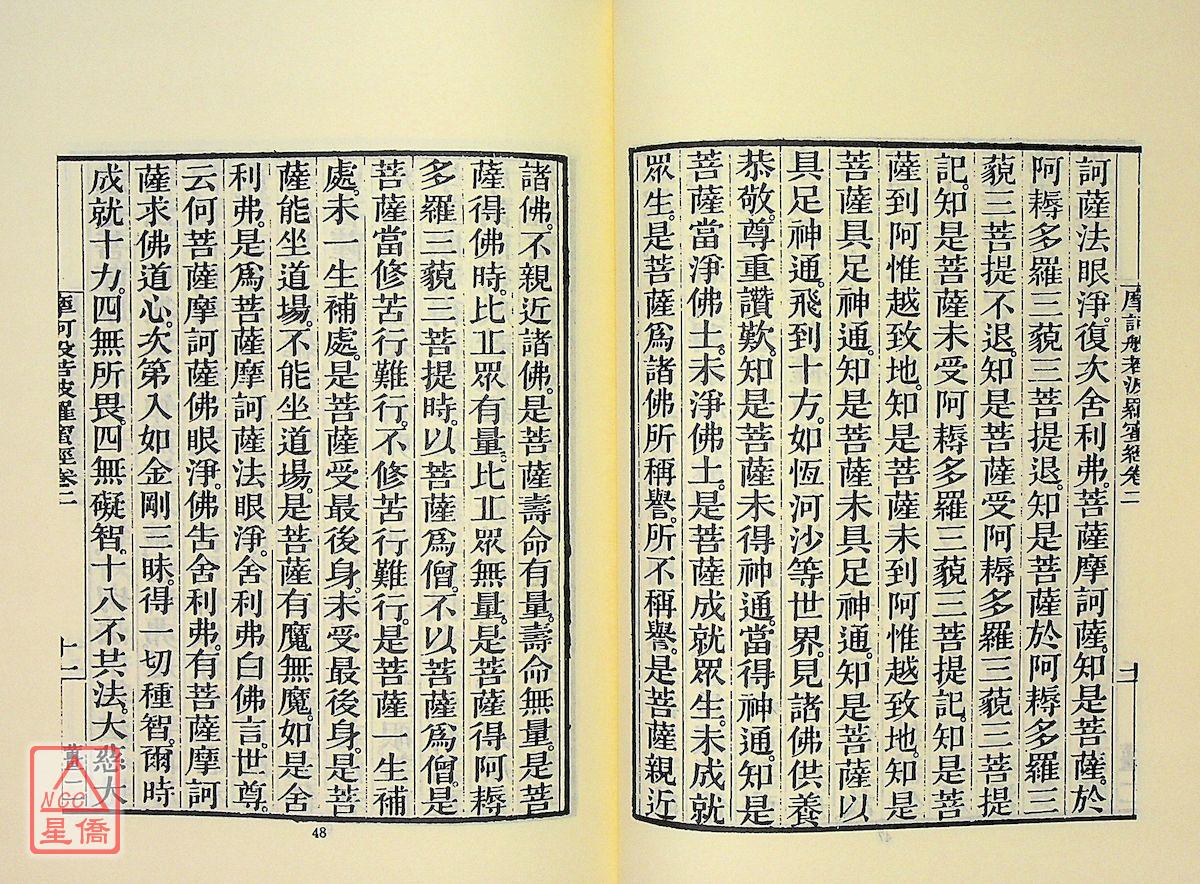 摩訶般若波羅蜜經卷二
訶薩法眼淨。復次舍利弗。菩薩摩訶薩。知是菩薩。於
阿耨多羅三藐三菩提退。知是菩薩於阿耨多羅三
藐三菩提不退。知是菩薩受阿耨多羅三藐三菩提
記。知是菩薩未受阿耨多羅三藐三菩提記。知是菩
薩到阿惟越致地。知是菩薩未到阿惟越致地。知是
菩薩具足神通。知是菩薩未具足神通。知是菩薩以
具足神通。飛到十方。如恆河沙等世界。見諸佛供養
恭敬。尊重讚歎。知是菩薩未得神通。當得神通。知是
菩薩當淨佛土。未淨佛土。是菩薩成就眾生。未成就
眾生。是菩薩為諸佛所稱譽。所不稱譽。是菩薩親近
諸佛。不親近諸佛。是菩薩壽命有量。壽命無量。是菩
薩得佛時。比丘眾有量。比丘眾無量。是菩薩得阿耨
多羅三藐三菩提時。以菩薩為僧。不以菩薩為僧。是
菩薩當修苦行難行。不修苦行難行。是菩薩一生補
處。未一生補處。是菩薩受最後身。未受最後身。是菩
薩能坐道場。不能坐道場。是菩薩有魔無魔。如是舍
利弗。是為菩薩摩訶薩法眼淨。舍利弗白佛言。世尊。
云何菩薩摩訶薩佛眼淨。佛告舍利弗。有菩薩摩訶
薩求佛道心。次第入如金剛三昧。得一切種智。爾時
成就十力。四無所畏。四無礙智。十八不共法。大慈大
摩訶般若波羅蜜經卷二
十一
48
NCC
星僑